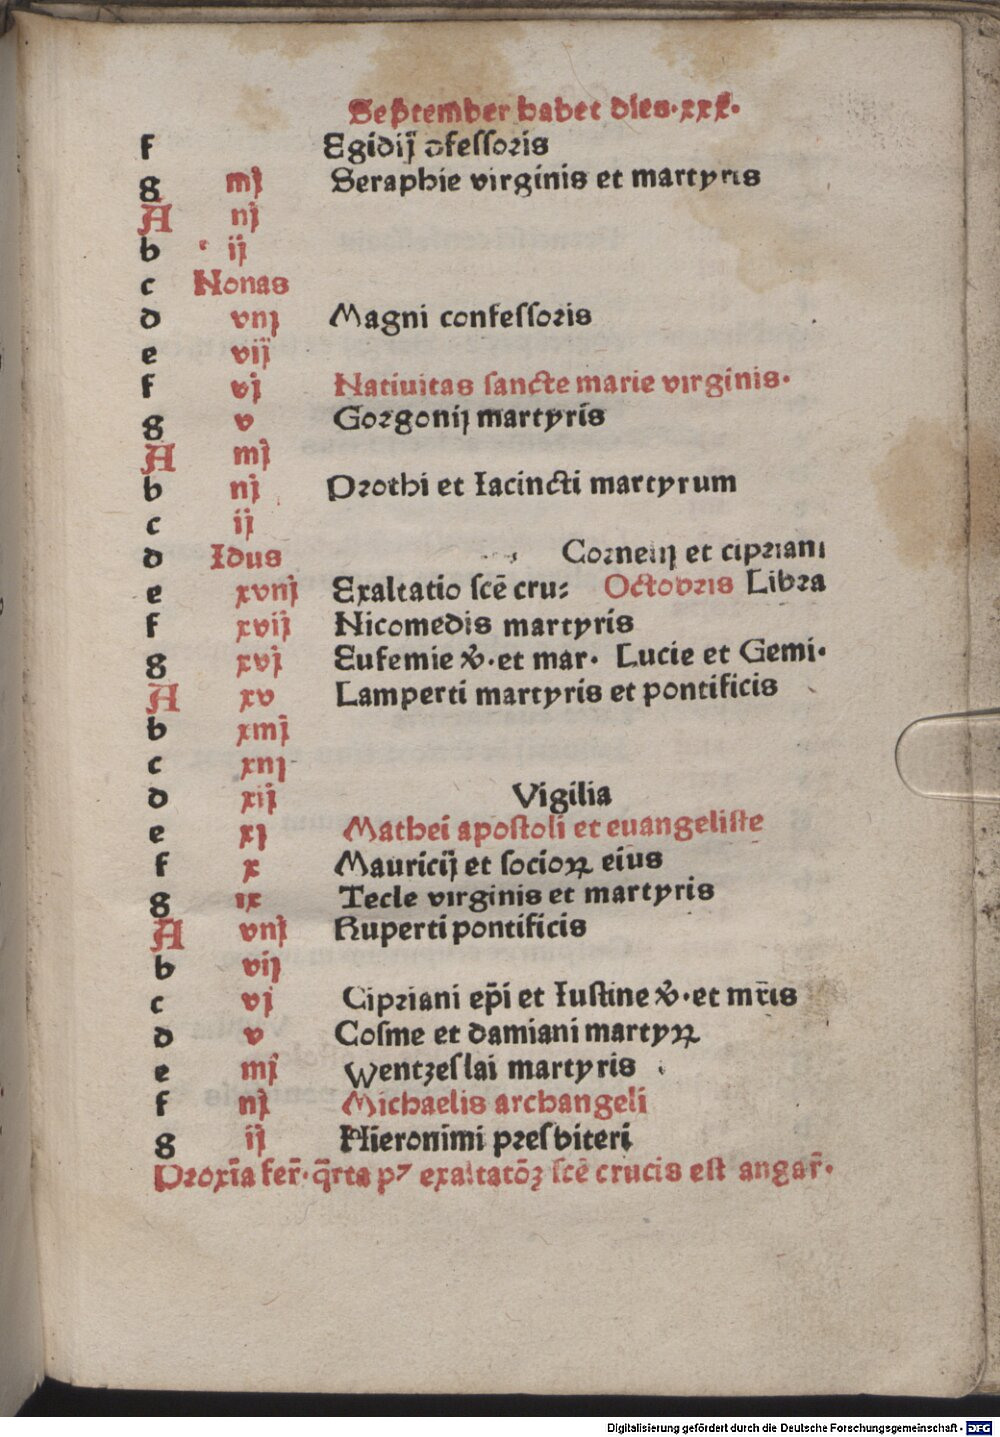 September habet dies·xxx·
f Egidij ↄfessoris
g iiij Seraphie virginis et martyris
A iij
b ij
c Nonas
d viij Magni confessoris
e vij
f vj Natiuitas sancte marie virginis·
g v Gorgonij martyris
A iiij
b iij Prothi et Iacincti martyrum
c ij
d Idus Cornelij et cipriani
e xviij Exaltatio scē cru: Octobris Libra
f xvij Nicomedis martyris
g xvj Eufemie v̄·et mar· Lucie et Gemi·
A xv Lamperti martyris et pontificis
b xiiij
c xiij
d xij Vigilia
e xj Mathei apostoli et euangeliste
f x Mauricij et socioꝝ eius
g ix Tecle virginis et martyris
A viij Ruperti pontificis
b vij
c vj Cipriani ep̄i et Iustine v̄·et mr̄is
d v Cosme et damiani martyꝝ
e iiij Wentzeslai martyris
f iij Michaelis archangeli
g ij Hieronimi presbiteri
Proxīa fer̄·q̄rta pꝰ exaltatōꝫ scē crucis est angar̄·
Digitalisierung gefördert durch die Deutsche Forschungsgemeinschaft - DFG